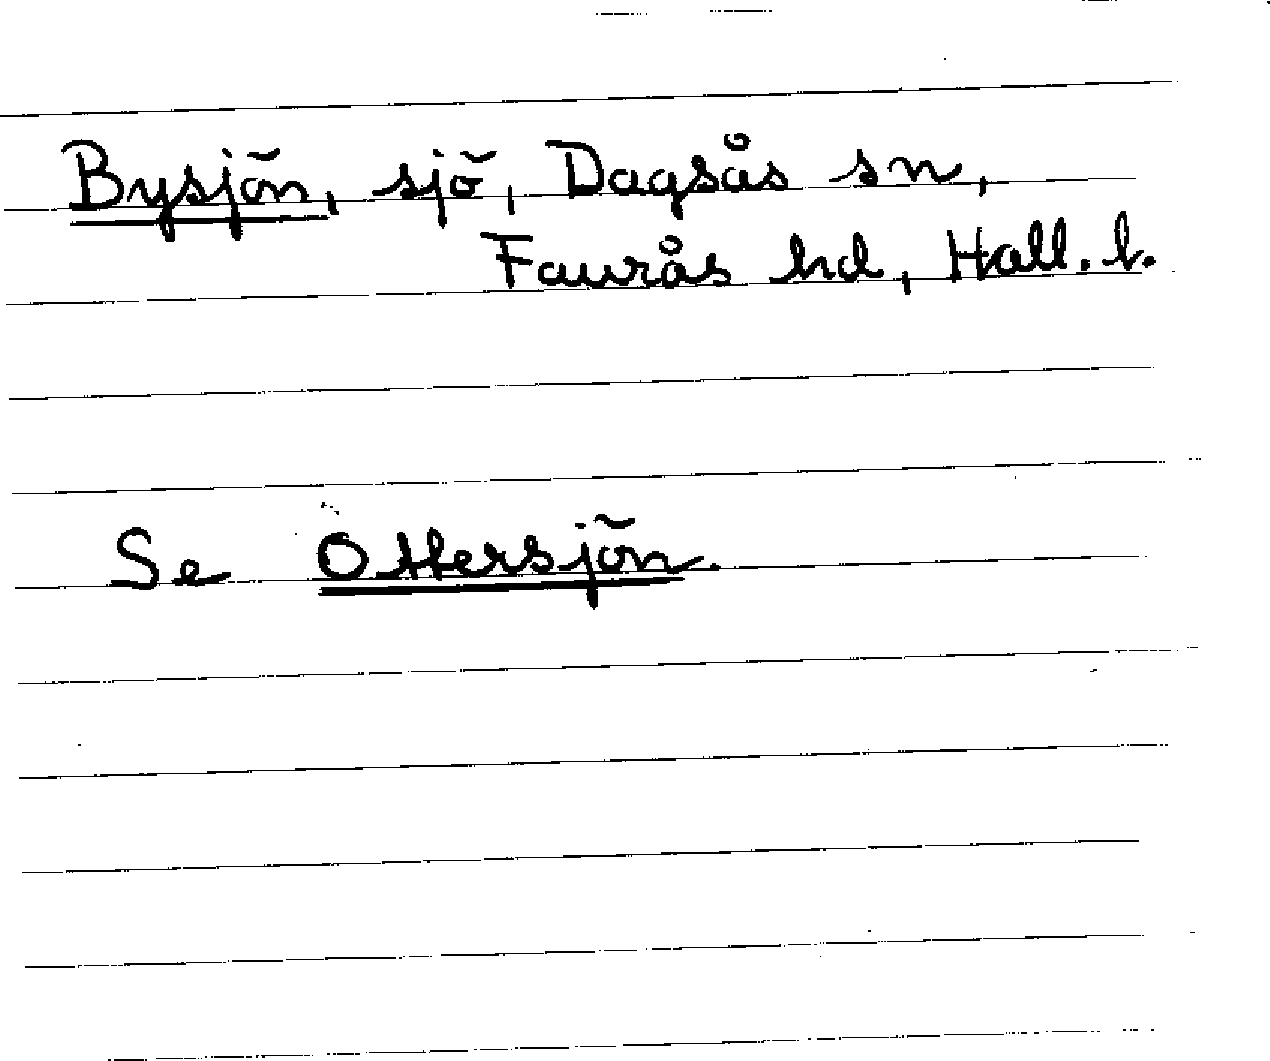 Bysjön, sjö, Dagsås sn,
Faurås hd, Hall. l.
Se Ottersjön.